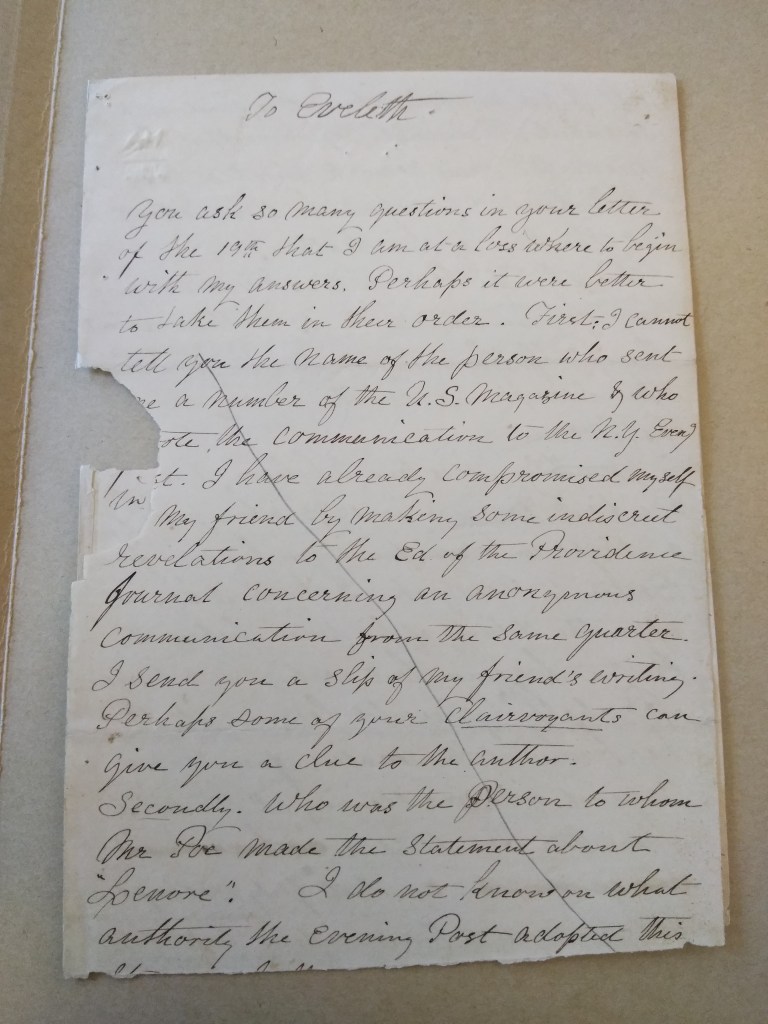 To Eveleth.
You ask so many questions in your letter
of the 19th that I am at a loss where to begin
with my answers. Perhaps it were better
to take them in their order. First; I cannot
tell you the name of the person who sent
me a number of the U.S. Magazine & who
ote the communication to the N.Y. Eveng
P st. I have already compromised myself
in my friend by making some indiscreet
revelations to the Ed of the Providence
Journal concerning an anonymous
communication from the same quarter.
I send you a slip of my friend's writing.
Perhaps some of your Clairvoyants can
give you a clue to the author.
Secondly. Who was the person to whom
Mr Poe made the statement about
"Lenore". I do not know on what
authority the Evening Post adopted this